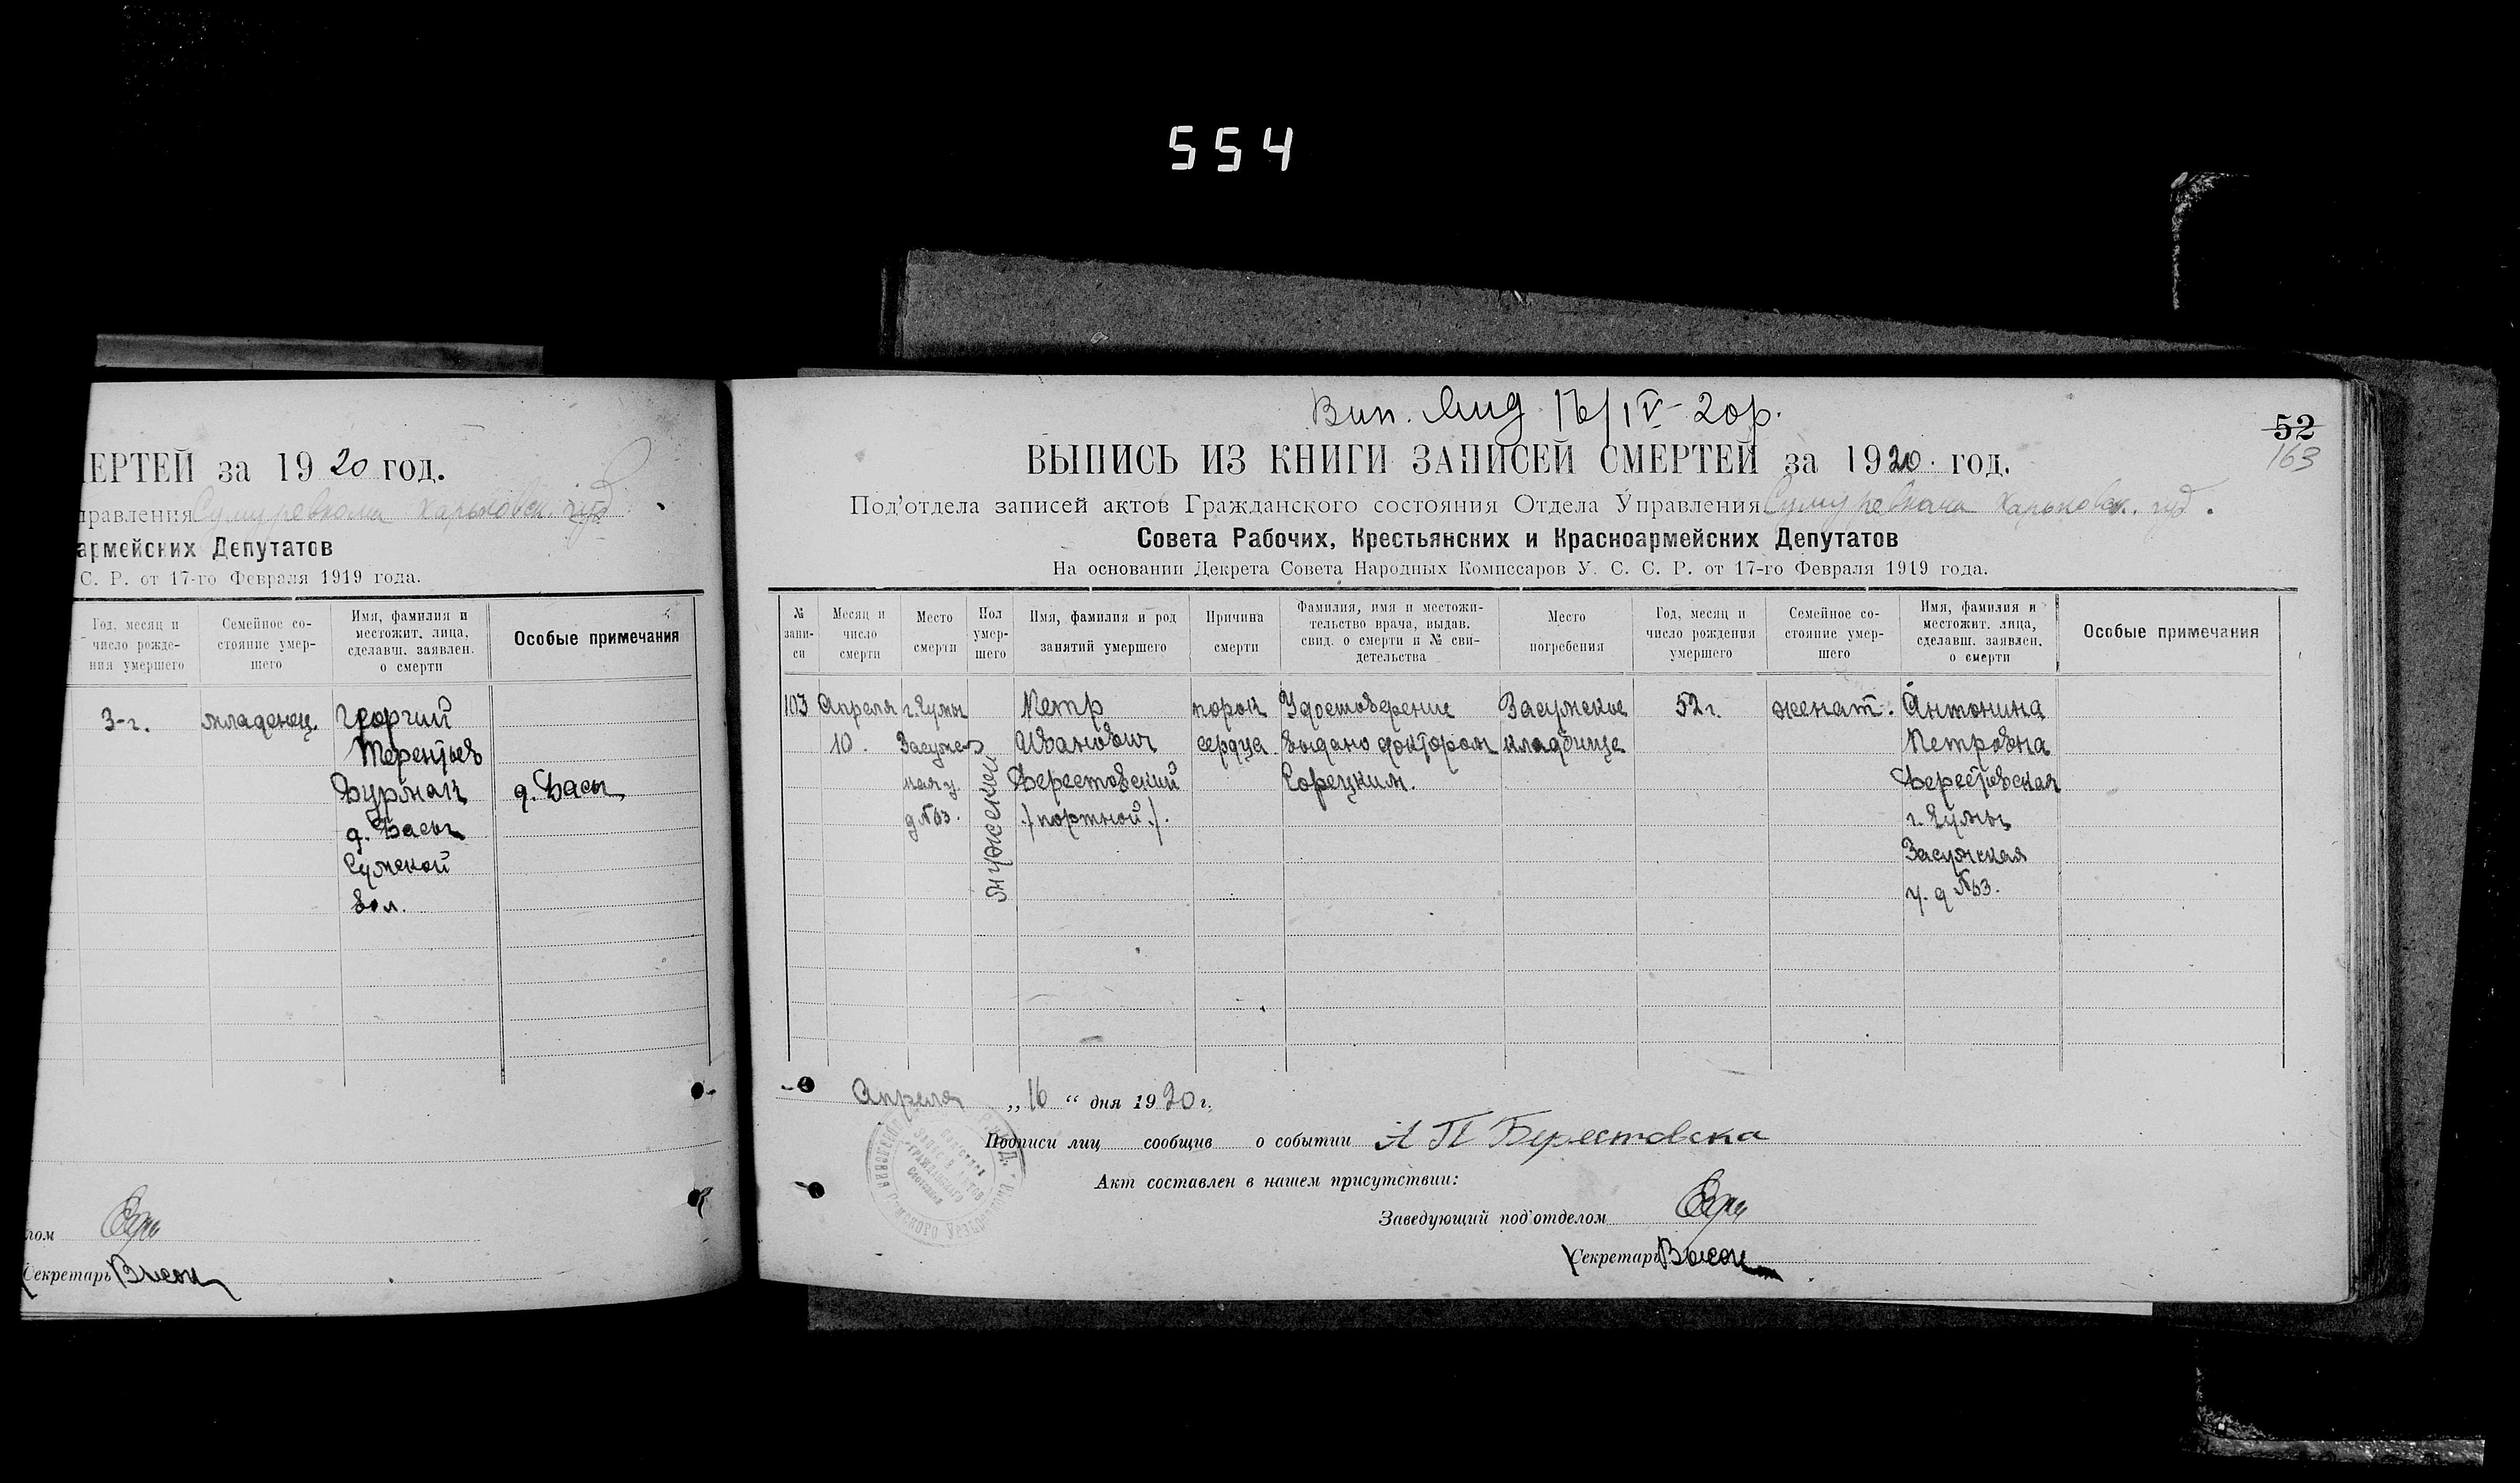 554
ЕРТЕЙ за 1920 год.
правления Сумуревкома Харьковск. губ.
армейских Депутатов
С. Р. от 17-го Февраля 1919 года.
Год, месяц и число рожде- ния умершего
Семейное со- стояние умер- шего
Имя, фамилия и местожит. лица, сделавш. заявлен. о смерти
Особые примечания
3-г.
младенец.
Георгий
Терентьев
Бурмак
д. Басы
Сумской
вол.
д. Басы
лом
Секретарь
Вип. Вид. 16/IV-20р.
52
163
ВЫПИСЬ ИЗ КНИГИ ЗАПИСЕЙ СМЕРТЕЙ за 1920. год.
Под'отдела записей актов Гражданского состояния Отдела Управления Сумуревкома Харьковск. губ.
Совета Рабочих, Крестьянских и Красноармейских Депутатов
На основании Декрета Совета Народных Комиссаров У. С. С. Р. от 17-го Февраля 1919 года.
№ запи- си
Месяц и число смерти
Место смерти
Пол умер- шего
Имя, фамилия и род занятий умершего
Причина смерти
Фамилия, имя и местожи- тельство врача, выдав. свид. о смерти и № сви- детельства
Место погребения
Год, месяц и число рождения умершего
Семейное со- стояние умер- шего
Имя, фамилия и местожит. лица, сделавш. заявлен. о смерти
Особые примечания
103
Апреля
10.
г. Сумы
Засумс-
кая у.
д №3.
мужской
Петр
Иванович
Берестовский
/портной./.
порок
сердца.
Удостоверение
выдано доктором
Горецким.
Засумское
кладбище
52 г.
женат.
Антонина
Петровна
Берестовская
г. Сумы
Засумская
у. д №3.
Апреля „16“ дня 1920 г.
Подписи лиц сообщив о событии А П Берестовска
Акт составлен в нашем присутствии:
Заведующий под'отделом
Секретарь